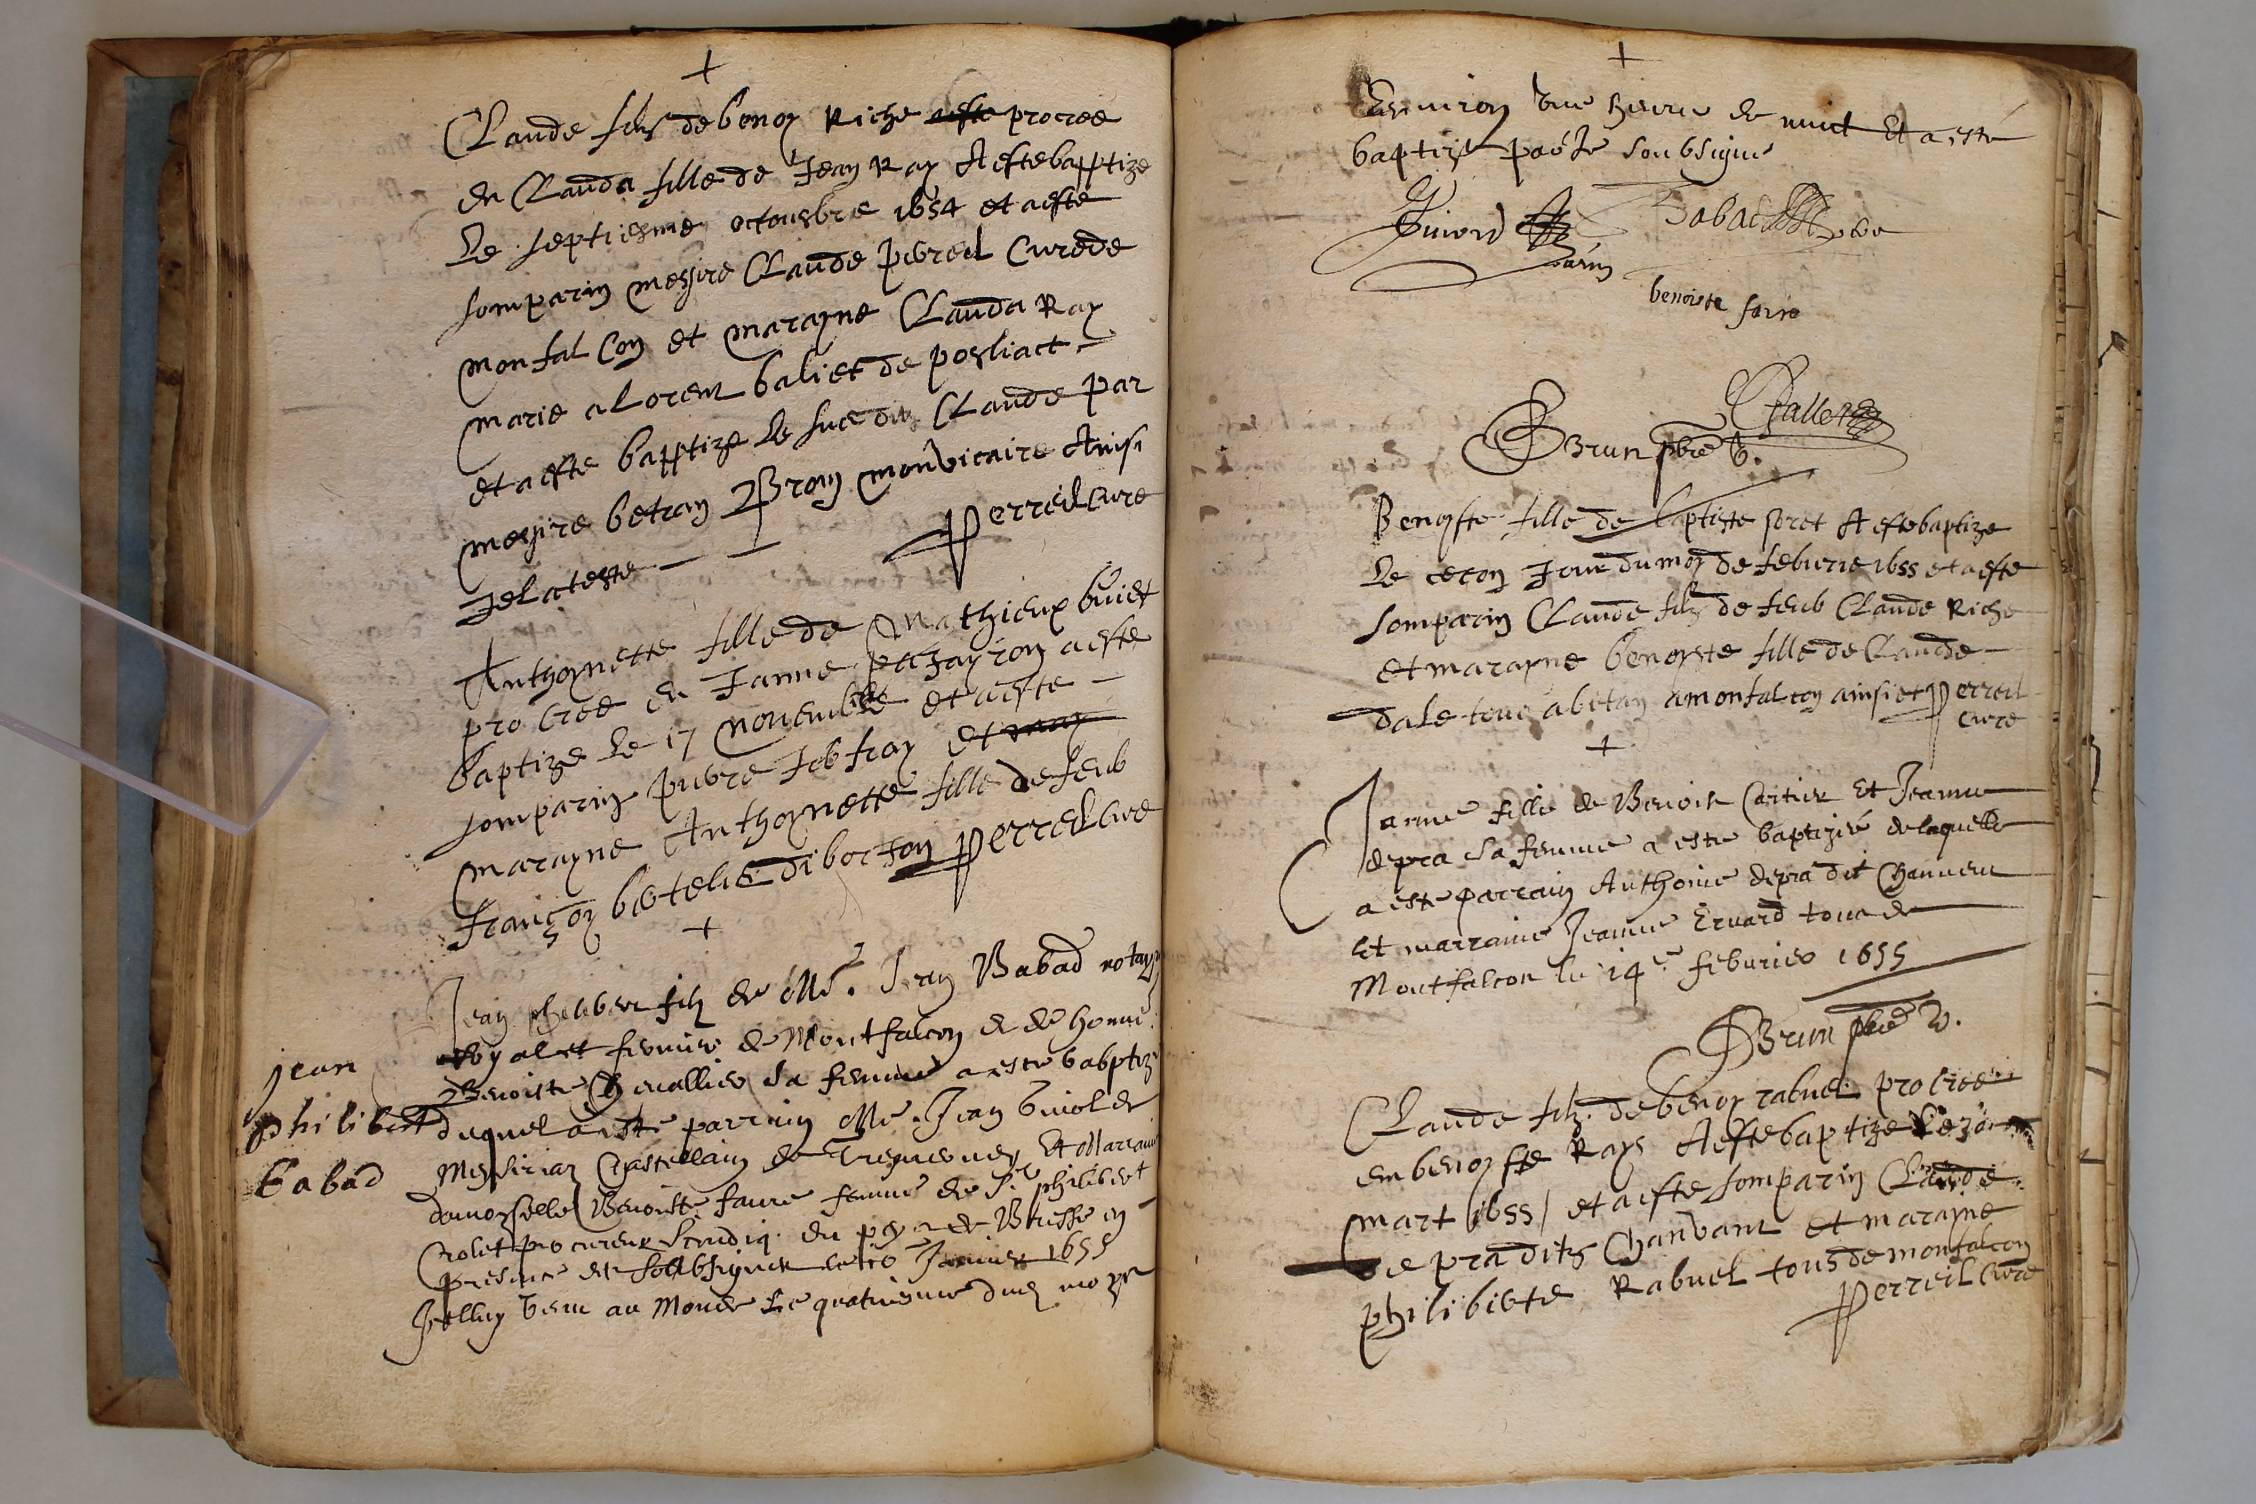 +
Claude filz de benoy Riche aeste procree
en Clauda fille de Jean Ray A este bapptize
Le septiesme octousbre 1654 et aeste
somparin messire Claude perreil Curede
monfalcon et marayne Clauda Ray
marie a Lorent baliet de posliact
et aeste bapptize le susdit Claude par
messire betran Bron mon vicaire Ainsi
Je lateste Perreil cure
Anthoynette fille de Mathieux buiet
procree en Janne aeste
baptize le 17 novembre et aeste
somparin et may
marayne Anthoynette fille de feub
françoy Perreil cure
+
Jean philibert filz de Me. Jean Babad notay
royal et fermier de Montfalcon & de honne.
jean
Benoiste Chevallier sa femme a este babptiz
philibert duquel a este parrain Me. Jean
Chastellain de Et Marraine
babad
damoyselle Benoiste faure femme de Sr. philibert
Crolet procureur Scindiq. du pays de Bresse en
presence des soubsignes le 10 Janvier 1655
Jcelluy venu au Monde le quatriesme dud moys
+
Environ une heure de nuict Et a esté
baptisé par le soubsigne
Babad
benoiste faure
Brun pbre V.
Benoyste fille de baptiste soret A este baptize
Le cecon Jour du moy de feburie 1655 et aeste
somparin Claude filz de feub Claude Riche
et marayne benoyste fille de Claude
dale tous abitan a monfalcon ainsi et Perreil
cure
+
Janne fille de Benoist Cartier Et Jeanne
depra sa femme a este baptizée de laquelle
a este parrain Anthoine depra dit Chanvent
Et marraine Jeanne Ervard tous de
Montfalcon le 14e feburier 1655
Brun pbre V.
Claude filz. de benoy rabuel procree
en benoyste Rays A este baptize Le 30
mart 1655 / et aeste somparin Claude
de pra ditz Chanvant et marayne
philibiete Rabuel tous de monfalcon
Perreil Cure